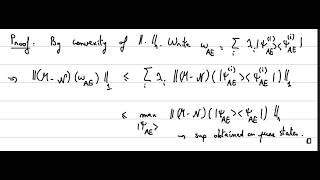 Proof: By convexity of ||.||₁. Write ω_AE = Σ_i λ_i |Ψ_AE^(i)><Ψ_AE^(i)|
⇒ ||(M-N)(ω_AE)||₁ ≤ Σ_i λ_i ||(M-N)(|Ψ_AE^(i)><Ψ_AE^(i)|)||₁
≤ max_|Ψ_AE> ||(M-N)(|Ψ_AE><Ψ_AE|)||₁
↝ sup obtained on pure states. □